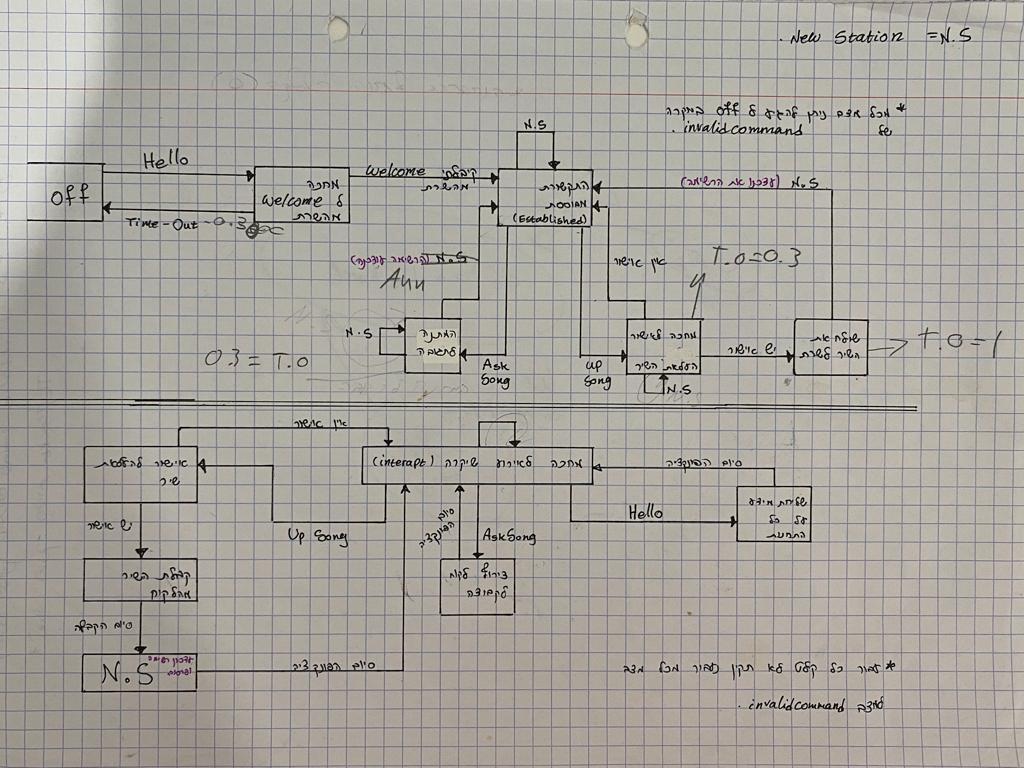 . New Station = N.S
* מכל מצב ניתן להגיע ל off במקרה
של invalid command .
N.S
Hello
Off
Time-Out - 0.3 sec
מחכה
ל Welcome
מהשרת
קיבלתי Welcome
מהשרת
התקשורת
מבוססת
(Established)
N.S (עדכון את הרשימה)
N.S (הרשימה עודכנה)
Ann
אין אישור
T.O=0.3
N.S
המתנה
לתגובה
0.3 = T.O
Ask
Song
up
Song
מחכה לאישור
העלאת השיר
N.S
יש אישור
שולח את
השיר לשרת
T.O=1
אין אישור
אישור להעלאת
שיר
מחכה לאירוע שיקרה (interapt)
סיום הפונקציה
שליחת מידע
על כל
התחנות
Hello
Up Song
סיום
הפונקציה
AskSong
צירוף לקוח
לקבוצה
יש אישור
קבלת השיר
מהלקוח
סיום הקבלה
N.S
עדכון רשימת
סיום הפונקציה
* עבור כל קלט לא תקין נעבור מכל מצב
למצב invalid command .